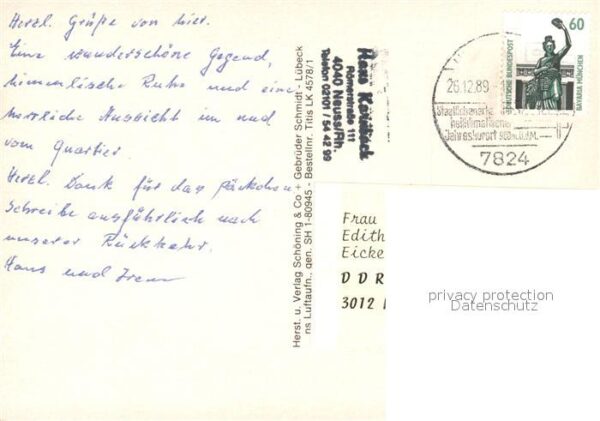 Herzl. Grüße von hier.
Eine wunderschöne Gegend,
himmlische Ruhe und eine
herrliche Aussicht im und
vom Quartier
Herzl. Dank für das Päckchen
Schreibe ausführlich nach
unserer Rückkehr.
Hans und
Herst. u. Verlag Schöning & Co + Gebrüder Schmidt - Lübeck
ns Luftaufn., gen. SH 1-80945 - Bestellnr. Titis LK 4578/1
Hans
Römerstraße 111
4040 Neuss/Rh.
Telefon 02101 / 54 42 99
60
DEUTSCHE BUNDESPOST
BAVARIA MÜNCHEN
26.12.89
Staatlich
heilklimatischer
Jahreskurort 800 M.Ü.M.
7824
Frau
Edith
Eicke
DDR
3012
privacy protection
Datenschutz